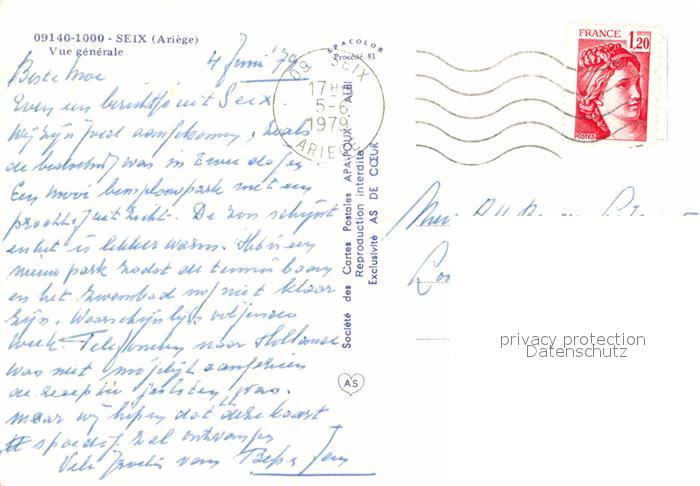 09140-1000 - SEIX (Ariège)
Vue générale
4 Juni 79
Beste Moe
Even een berichtje uit Seix.
Wij zijn goed aangekomen, zoals
de bedoeling was in twee dagen
Een mooi bungalowpark met een
prachtig uitzicht. De zon schijnt
en het is lekker warm. Het is een
nieuw park zodat de tennisbaan
en het zwembad nog niet klaar
zijn. Waarschijnlijk volgende
week. Telefoneren naar Holland
was niet mogelijk aangezien
de receptie gesloten was.
maar wij hopen dat deze kaart
spoedig zal ontvangen
Vele groeten van Beps en Jan
APACOLOR
Procédé 81
09 SEIX
17H
5-6
1979
ARIEGE
Société des Cartes Postales APA-POUX - ALBI
Reproduction interdite
Exclusivité AS DE CŒUR
AS
FRANCE
1,20
POSTES
privacy protection
Datenschutz